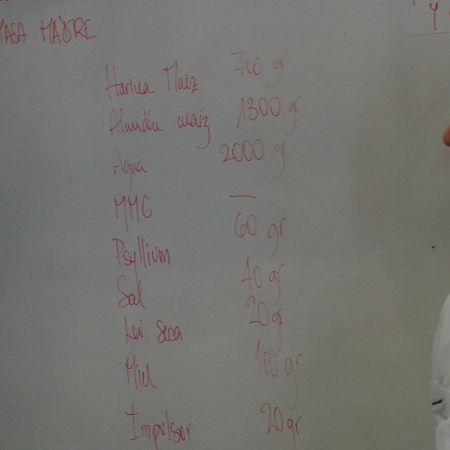 MASA MADRE
Y
Harina Maiz 700 gr
Almidón maíz 1300 gr
Agua 2000 gr
MMC —
Psyllium 60 gr
Sal 40 gr
Lev. seca 20 gr
Miel 100 gr
Impulsor 20 gr